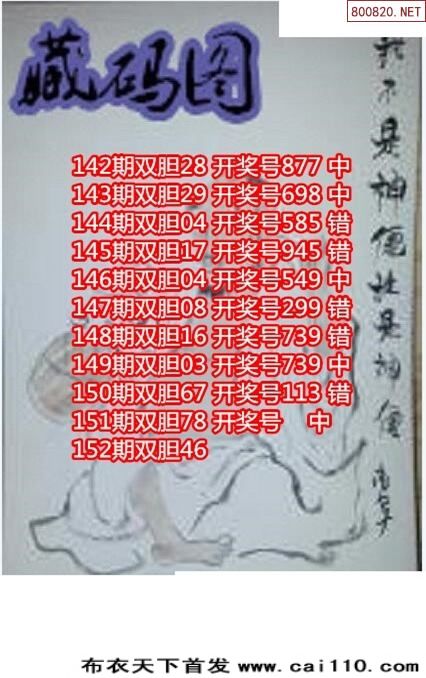 800820.NET
藏码图
我不是神仙谁是神仙
142期双胆28 开奖号877 中
143期双胆29 开奖号698 中
144期双胆04 开奖号585 错
145期双胆17 开奖号945 错
146期双胆04 开奖号549 中
147期双胆08 开奖号299 错
148期双胆16 开奖号739 错
149期双胆03 开奖号739 中
150期双胆67 开奖号113 错
151期双胆78 开奖号 中
152期双胆46
布衣天下首发 www.cai110.com